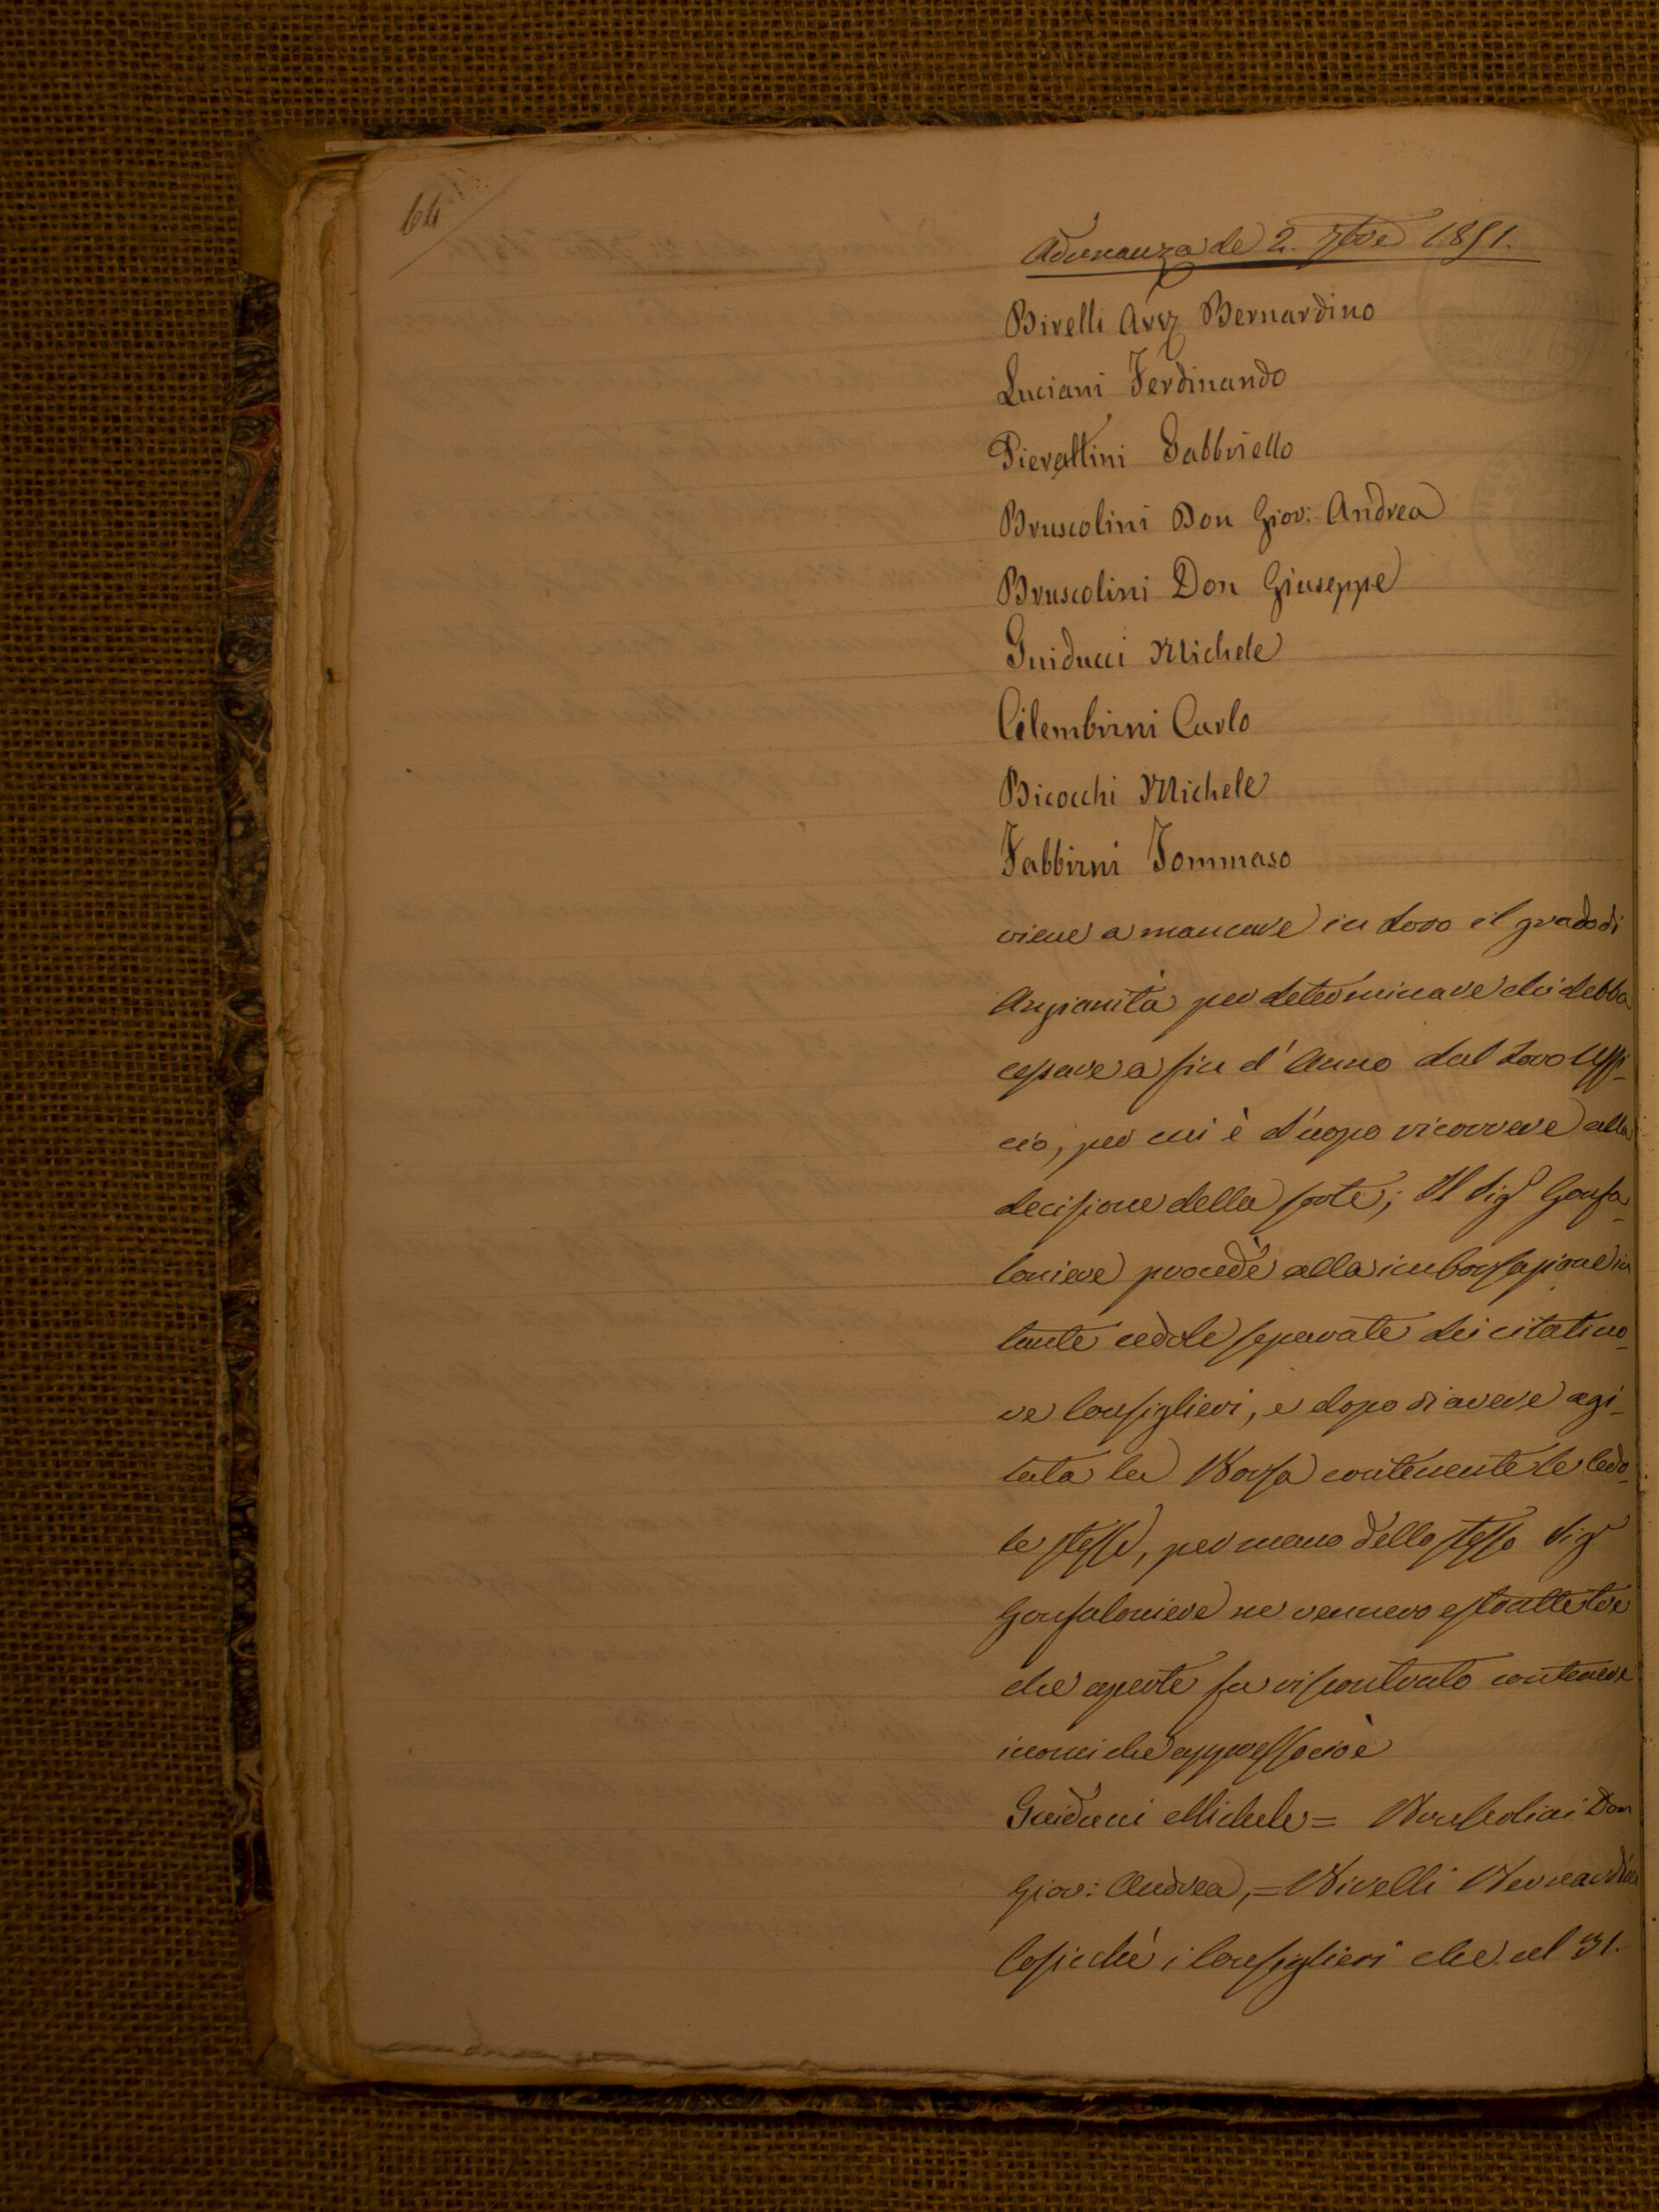 64
Adunanza de 2. 7bre 1851.
Birelli Avv. Bernardino
Luciani Ferdinando
Pierattini Gabbriello
Bruscolini Don Giov: Andrea
Bruscolini Don Giuseppe
Guiducci Michele
Cilembrini Carlo
Bicocchi Michele
Fabbrini Tommaso
viene a mancare in loro il grado di
Anzianità per determinare chi debba
cessare a fin d'Anno dal loro Uffi-
cio, per cui è d'uopo ricorrere alla
decisione della sorte; Il Sigr Gonfa-
loniere procedè alla imborsazione in
tante cedole separate dei citati no-
ve Consiglieri, e dopo di avere agi-
tata la Borsa contenente le Cedo-
le stesse, per mano dello stesso Sigr
Gonfaloniere ne vennero estratte tre
che aperte fu riscontrato contenere
i nomi che appresso cioè
Guiducci Michele = Bruscolini Don
Giov: Andrea, = Birelli Bernardino
Cosicchè i Consiglieri che al 31.